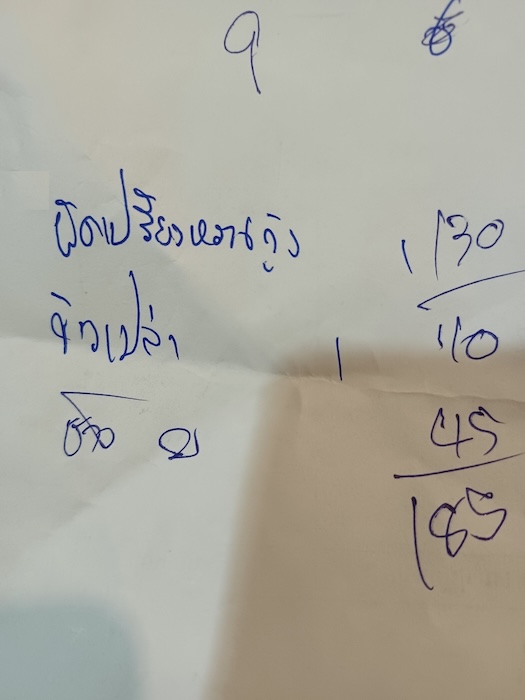 9
ผัดเปรี้ยวหวานกุ้ง 130
ข้าวเปล่า 1 10
ช้าง 45
185